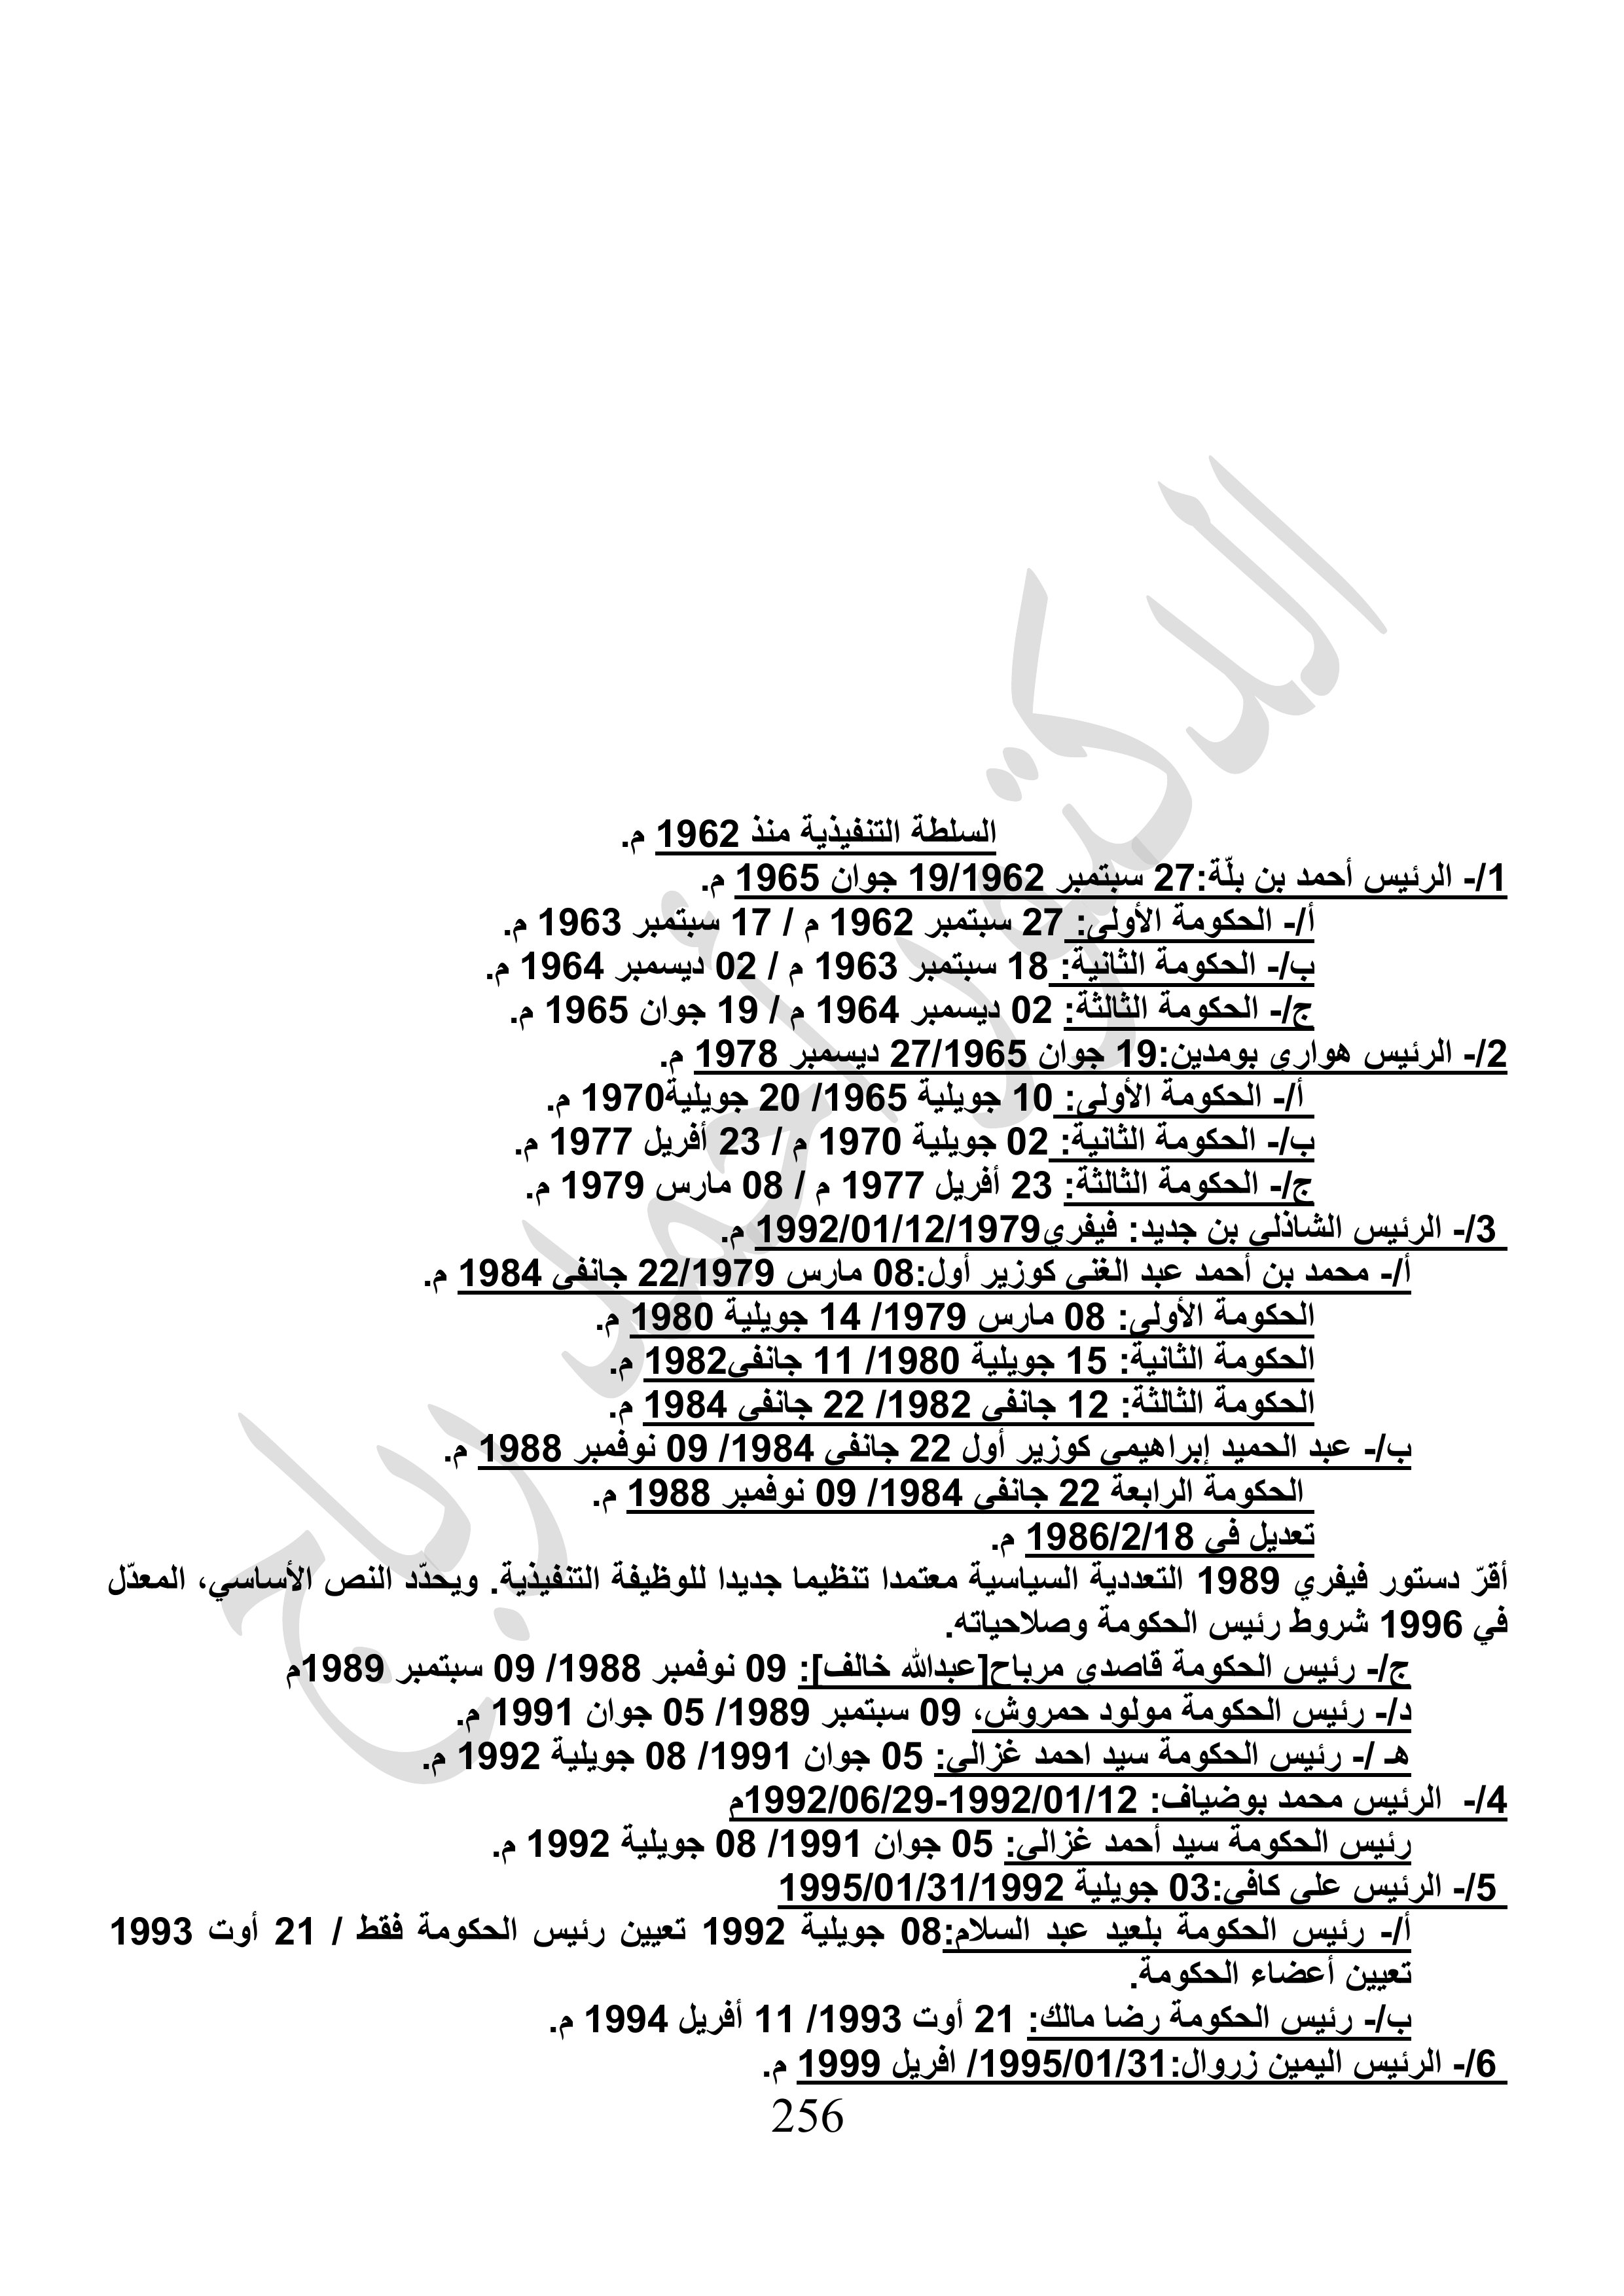 السلطة التنفيذية منذ 1962 م.
1/- الرئيس أحمد بن بلّة:27 سبتمبر 19/1962 جوان 1965 م.
أ/- الحكومة الأولى: 27 سبتمبر 1962 م / 17 سبتمبر 1963 م.
ب/- الحكومة الثانية: 18 سبتمبر 1963 م / 02 ديسمبر 1964 م.
ج/- الحكومة الثالثة: 02 ديسمبر 1964 م / 19 جوان 1965 م.
2/- الرئيس هواري بومدين:19 جوان 27/1965 ديسمبر 1978 م.
أ/- الحكومة الأولى: 10 جويلية 1965/ 20 جويلية1970 م.
ب/- الحكومة الثانية: 02 جويلية 1970 م / 23 أفريل 1977 م.
ج/- الحكومة الثالثة: 23 أفريل 1977 م / 08 مارس 1979 م.
3/- الرئيس الشاذلي بن جديد: فيفري1992/01/12/1979 م.
أ/- محمد بن أحمد عبد الغني كوزير أول:08 مارس 22/1979 جانفي 1984 م.
الحكومة الأولى: 08 مارس 1979/ 14 جويلية 1980 م.
الحكومة الثانية: 15 جويلية 1980/ 11 جانفي1982 م.
الحكومة الثالثة: 12 جانفي 1982/ 22 جانفي 1984 م.
ب/- عبد الحميد إبراهيمي كوزير أول 22 جانفي 1984/ 09 نوفمبر 1988 م.
الحكومة الرابعة 22 جانفي 1984/ 09 نوفمبر 1988 م.
تعديل في 1986/2/18 م.
أقرّ دستور فيفري 1989 التعددية السياسية معتمدا تنظيما جديدا للوظيفة التنفيذية. ويحدّد النص الأساسي، المعدّل
في 1996 شروط رئيس الحكومة وصلاحياته.
ج/- رئيس الحكومة قاصدي مرباح[عبدالله خالف]: 09 نوفمبر 1988/ 09 سبتمبر 1989م
د/- رئيس الحكومة مولود حمروش، 09 سبتمبر 1989/ 05 جوان 1991 م.
هـ /- رئيس الحكومة سيد احمد غزالي: 05 جوان 1991/ 08 جويلية 1992 م.
4/- الرئيس محمد بوضياف: 1992/01/12-1992/06/29م
رئيس الحكومة سيد أحمد غزالي: 05 جوان 1991/ 08 جويلية 1992 م.
5/- الرئيس علي كافي:03 جويلية 1995/01/31/1992
أ/- رئيس الحكومة بلعيد عبد السلام:08 جويلية 1992 تعيين رئيس الحكومة فقط / 21 أوت 1993
تعيين أعضاء الحكومة.
ب/- رئيس الحكومة رضا مالك: 21 أوت 1993/ 11 أفريل 1994 م.
6/- الرئيس اليمين زروال:1995/01/31/ افريل 1999 م.
256
الدكتور أحمد رباح